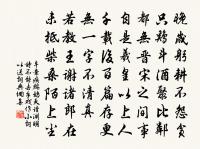 晚歲躬耕不怨貧
只雞斗酒聚比鄰
都無晉宋之間事
自是羲皇以上人
千載後百篇存更
無一字不清真
若教王謝諸郎在
未抵柴桑陌上塵
辛棄疾鷓鴣天讀淵明
詩不能去手戲作小詞
以送之